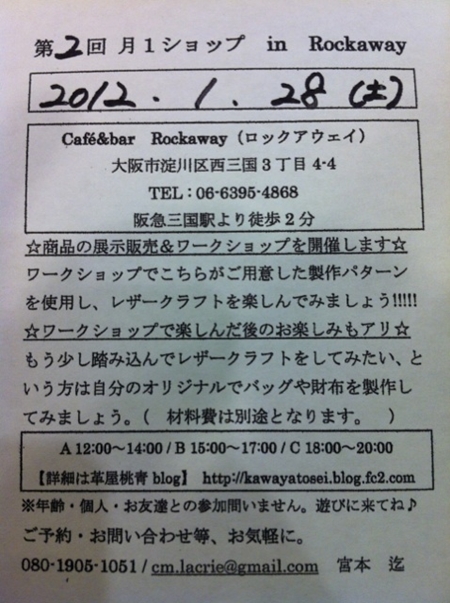 第2回 月1ショップ in Rockaway
2012.1.28(土)
Café&bar Rockaway（ロックアウェイ）
大阪市淀川区西三国3丁目4-4
TEL：06-6395-4868
阪急三国駅より徒歩2分
☆商品の展示販売＆ワークショップを開催します☆
ワークショップでこちらがご用意した製作パターン
を使用し、レザークラフトを楽しんでみましょう!!!!!
☆ワークショップで楽しんだ後のお楽しみもアリ☆
もう少し踏み込んでレザークラフトをしてみたい、と
いう方は自分のオリジナルでバッグや財布を製作し
てみましょう。（ 材料費は別途となります。 ）
A 12:00～14:00 / B 15:00～17:00 / C 18:00～20:00
【詳細は革屋桃青 blog】 http://kawayatosei.blog.fc2.com
※年齢・個人・お友達との参加問いません。遊びに来てね♪
ご予約・お問い合わせ等、お気軽に。
080-1905-1051 / cm.lacrie@gmail.com 宮本 迄